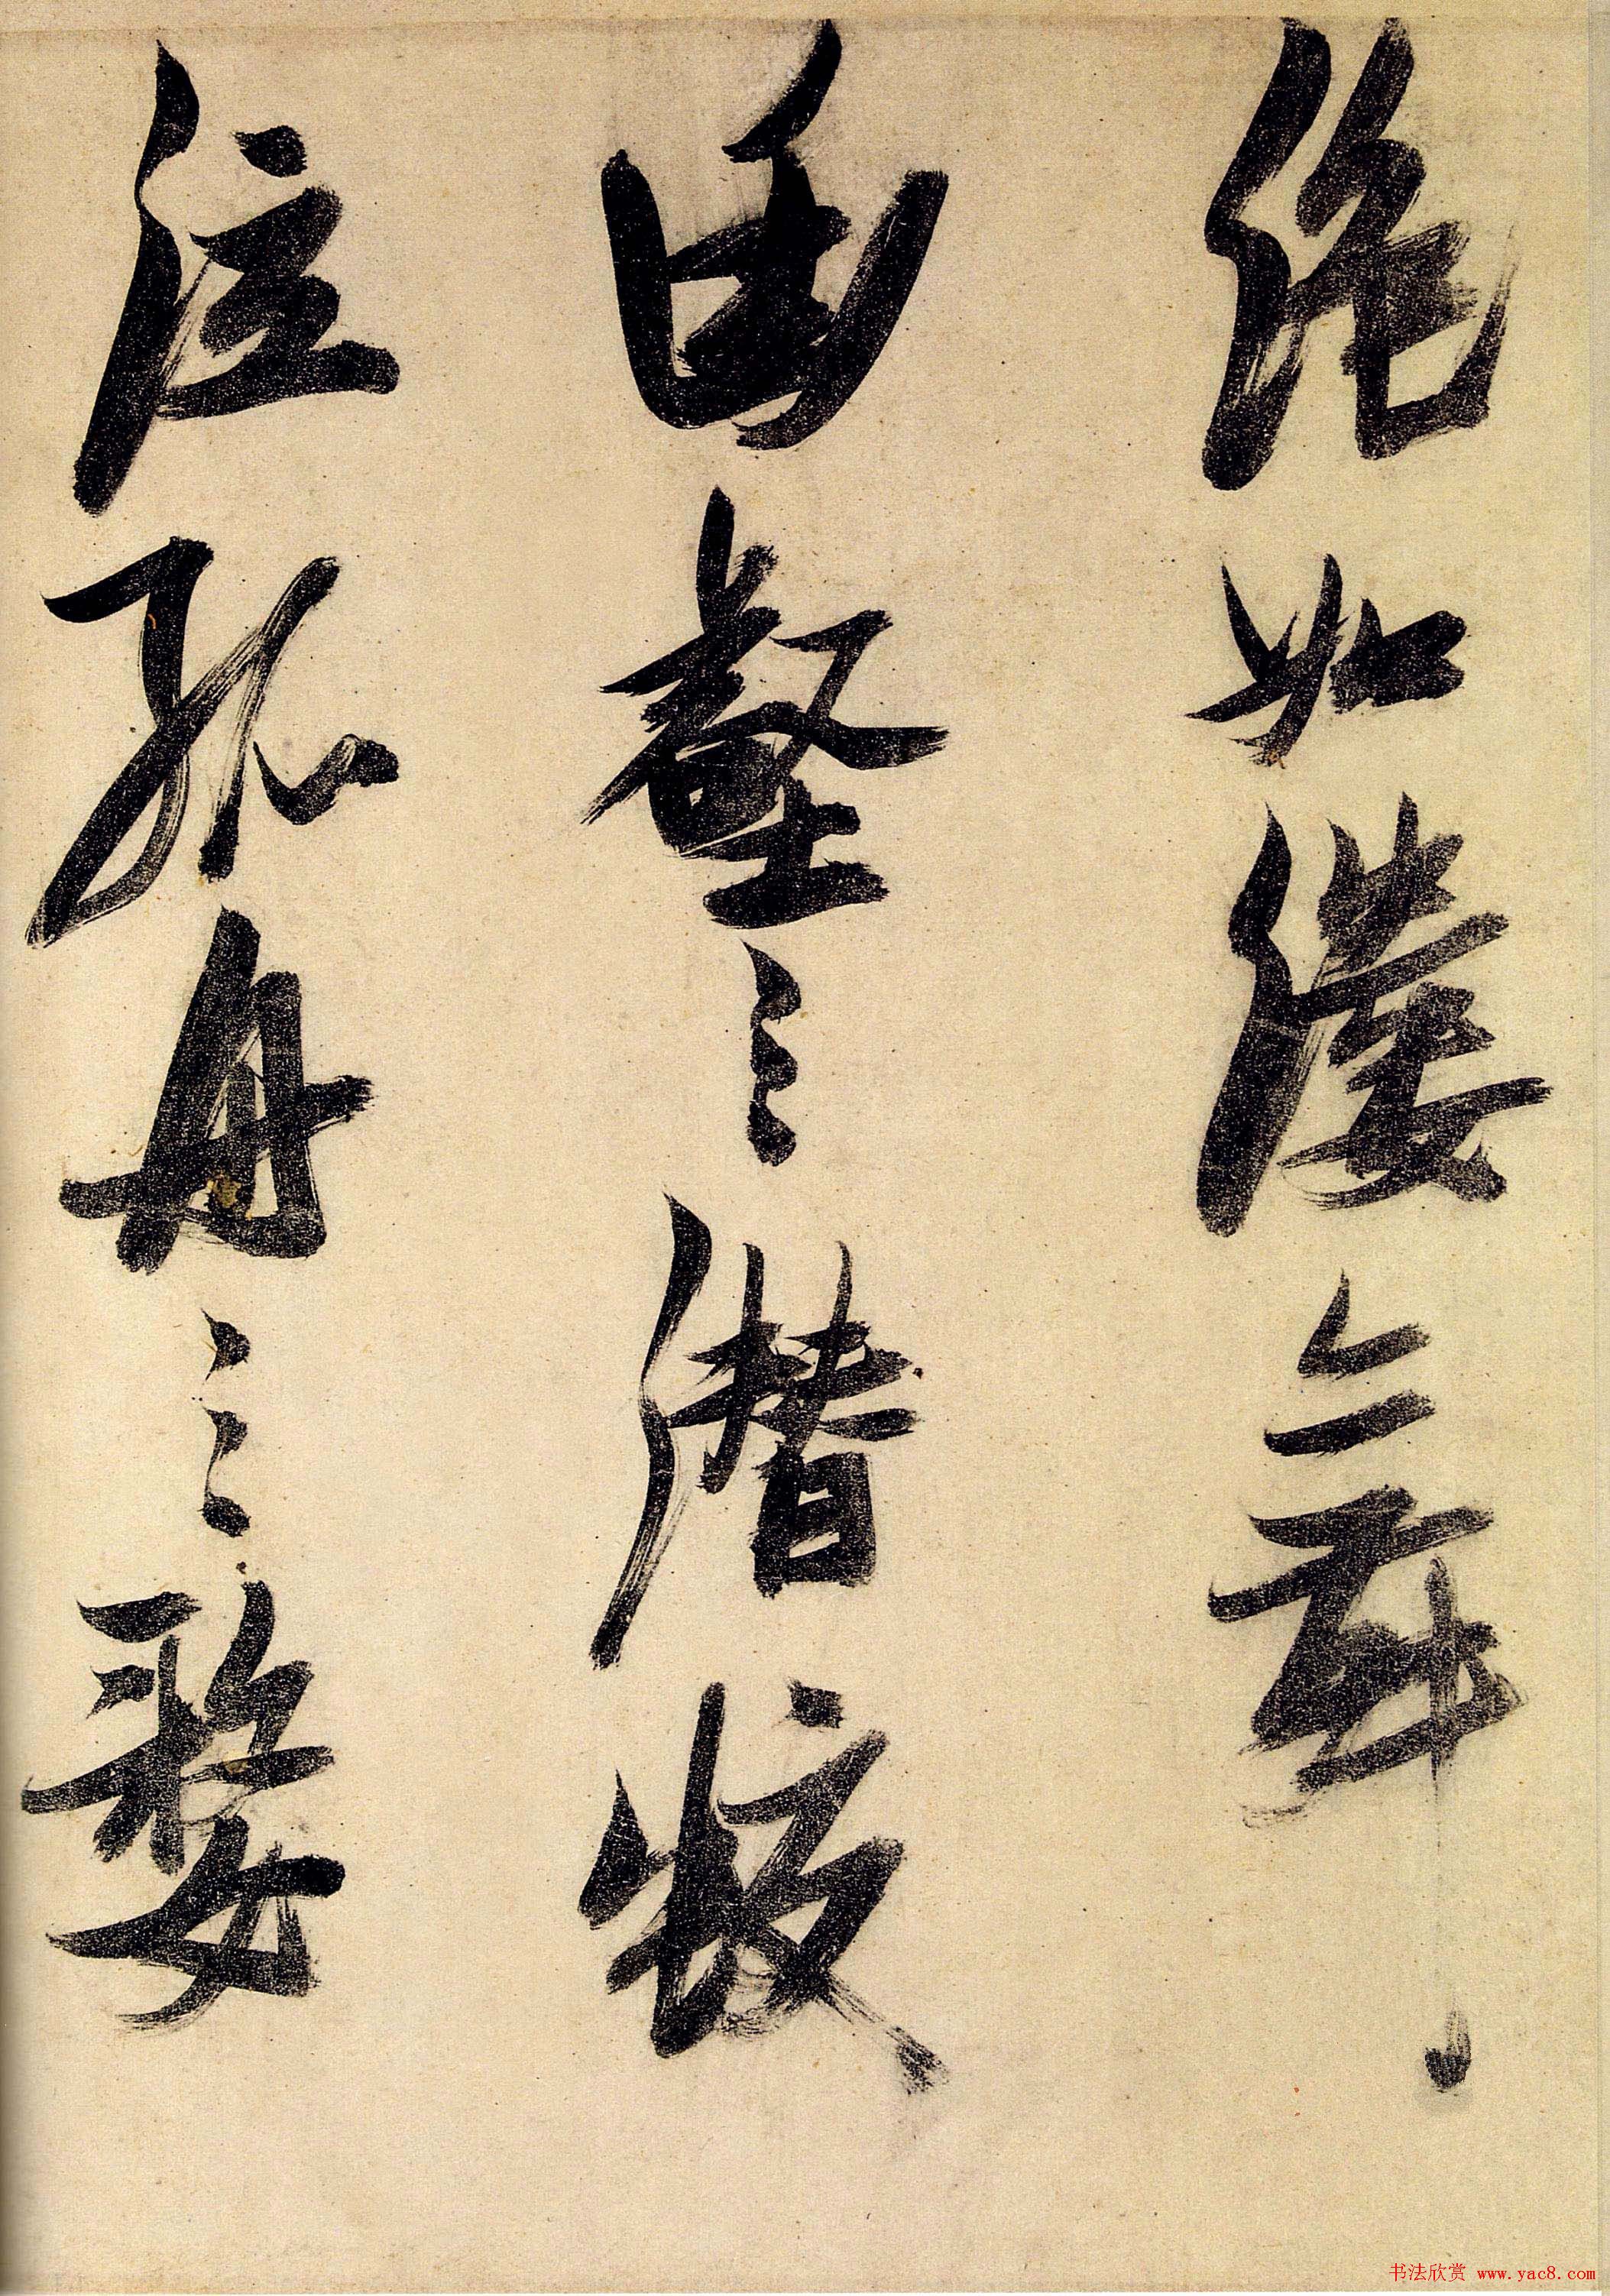 絕如縷舞
幽壑之潛蛟
泣孤舟之嫠
书法欣赏 www.yac8.com